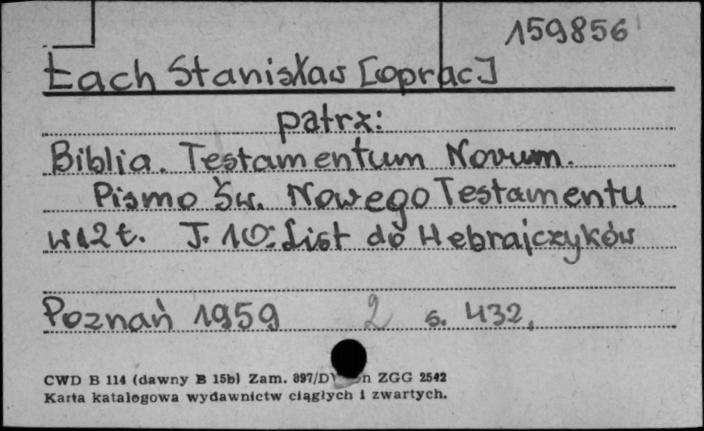 159856
Łach Stanisław [oprac]
patrz:
Biblia. Testamentum Novum.
Pismo Św. Nowego Testamentu
w 12 t. T. 10: List do Hebrajczyków
Poznań 1959 2 s. 432.
CWD B 114 (dawny B 15b) Zam. 897/D n ZGG 2542
Karta katalogowa wydawnictw ciągłych i zwartych.